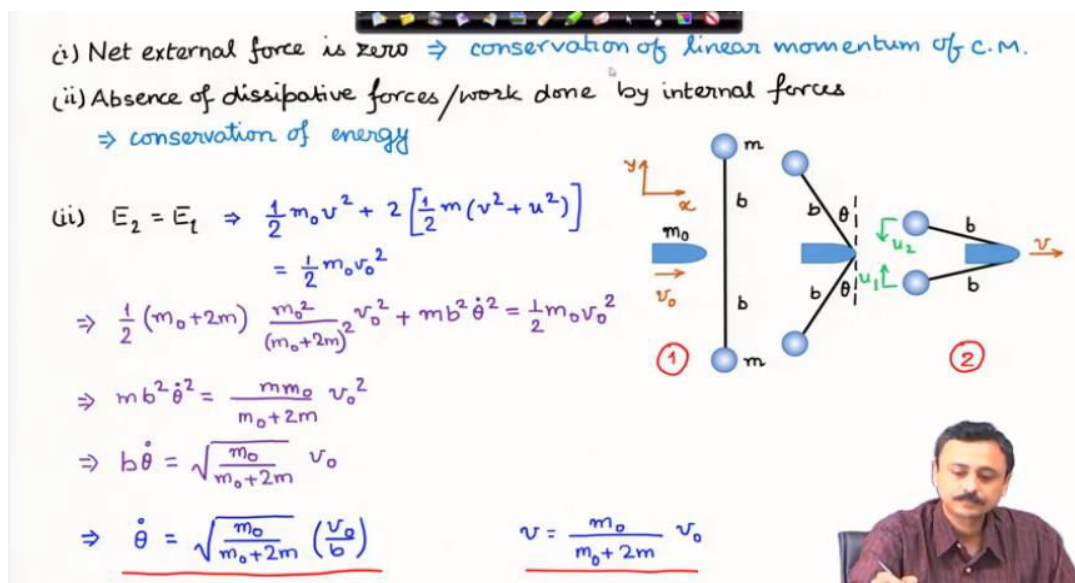 (i) Net external force is zero ⇒ conservation of linear momentum of C.M.
(ii) Absence of dissipative forces/work done by internal forces
⇒ conservation of energy
(ii) E₂ = E₁ ⇒ ½ m₀v² + 2[½ m(v² + u²)]
= ½ m₀v₀²
⇒ ½ (m₀+2m) m₀²/(m₀+2m)² v₀² + mb²θ̇² = ½ m₀v₀²
⇒ mb²θ̇² = mm₀/(m₀+2m) v₀²
⇒ bθ̇ = √(m₀/(m₀+2m)) v₀
⇒ θ̇ = √(m₀/(m₀+2m)) (v₀/b)
v = m₀/(m₀+2m) v₀
y
x
m₀
v₀
m
b
b
m
1
b
θ
b
θ
u₂
u₁
b
b
v
2